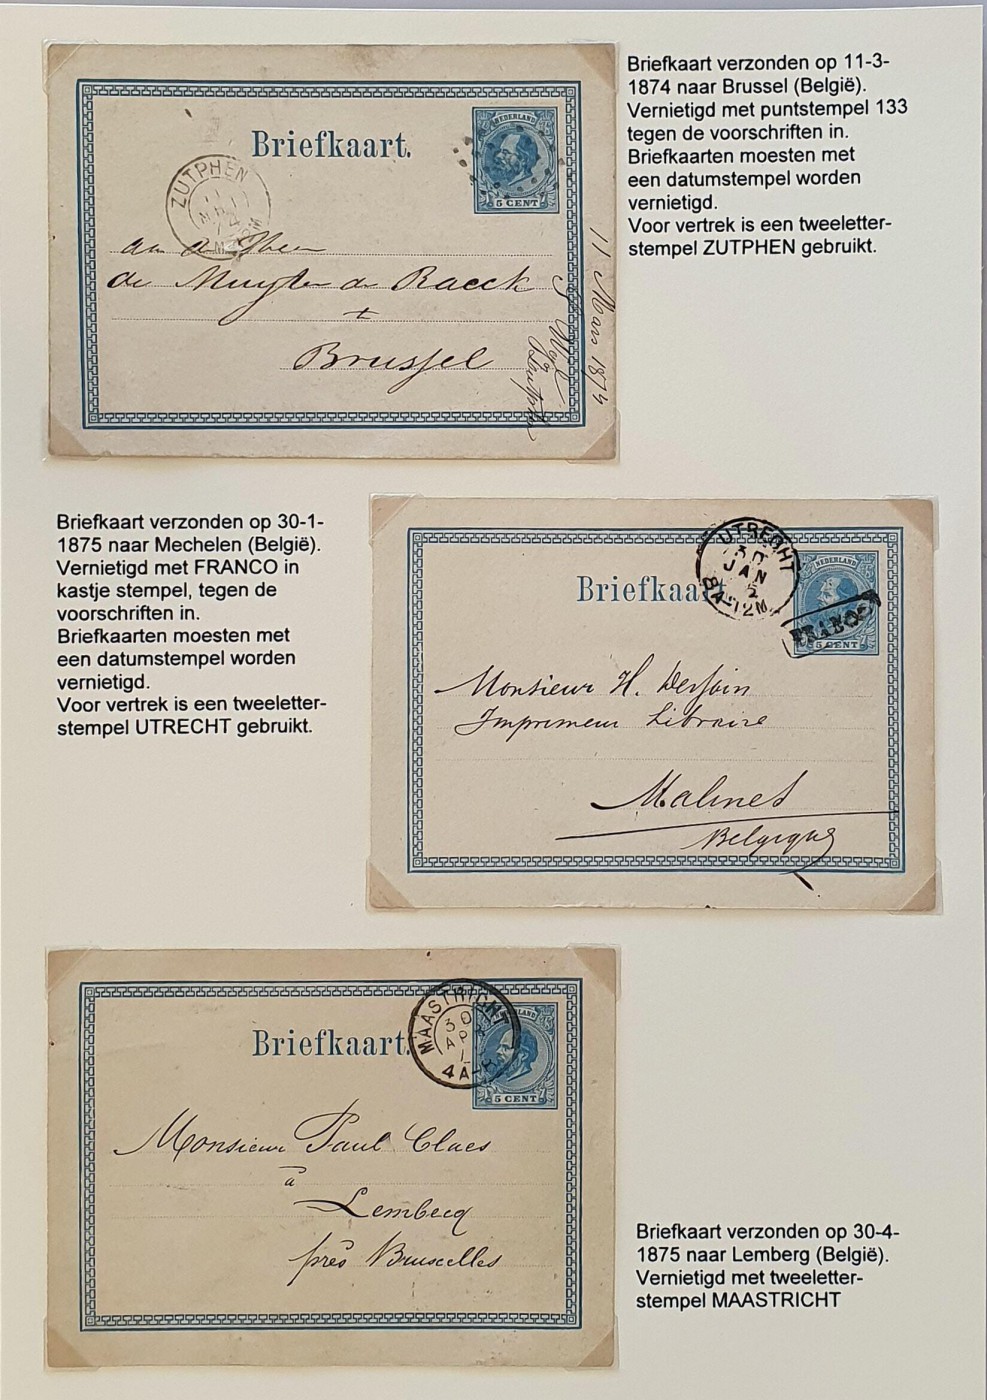 Briefkaart verzonden op 11-3-
1874 naar Brussel (België).
Vernietigd met puntstempel 133
tegen de voorschriften in.
Briefkaarten moesten met
een datumstempel worden
vernietigd.
Voor vertrek is een tweeletter-
stempel ZUTPHEN gebruikt.
Briefkaart.
NEDERLAND
5 CENT
ZUTPHEN
de Muyter de Raeck
Brussel
11 Maars 1874
Briefkaart verzonden op 30-1-
1875 naar Mechelen (België).
Vernietigd met FRANCO in
kastje stempel, tegen de
voorschriften in.
Briefkaarten moesten met
een datumstempel worden
vernietigd.
Voor vertrek is een tweeletter-
stempel UTRECHT gebruikt.
Briefkaart
NEDERLAND
5 CENT
UTRECHT
30
JAN
8A-12M
FRANCO
Monsieur H.
Imprimeur Libraire
Malines
Belgique
Briefkaart.
NEDERLAND
5 CENT
MAASTRICHT
30
APR
4A-8
Monsieur Paul Claes
à
Lembecq
près Bruxelles
Briefkaart verzonden op 30-4-
1875 naar Lemberg (België).
Vernietigd met tweeletter-
stempel MAASTRICHT